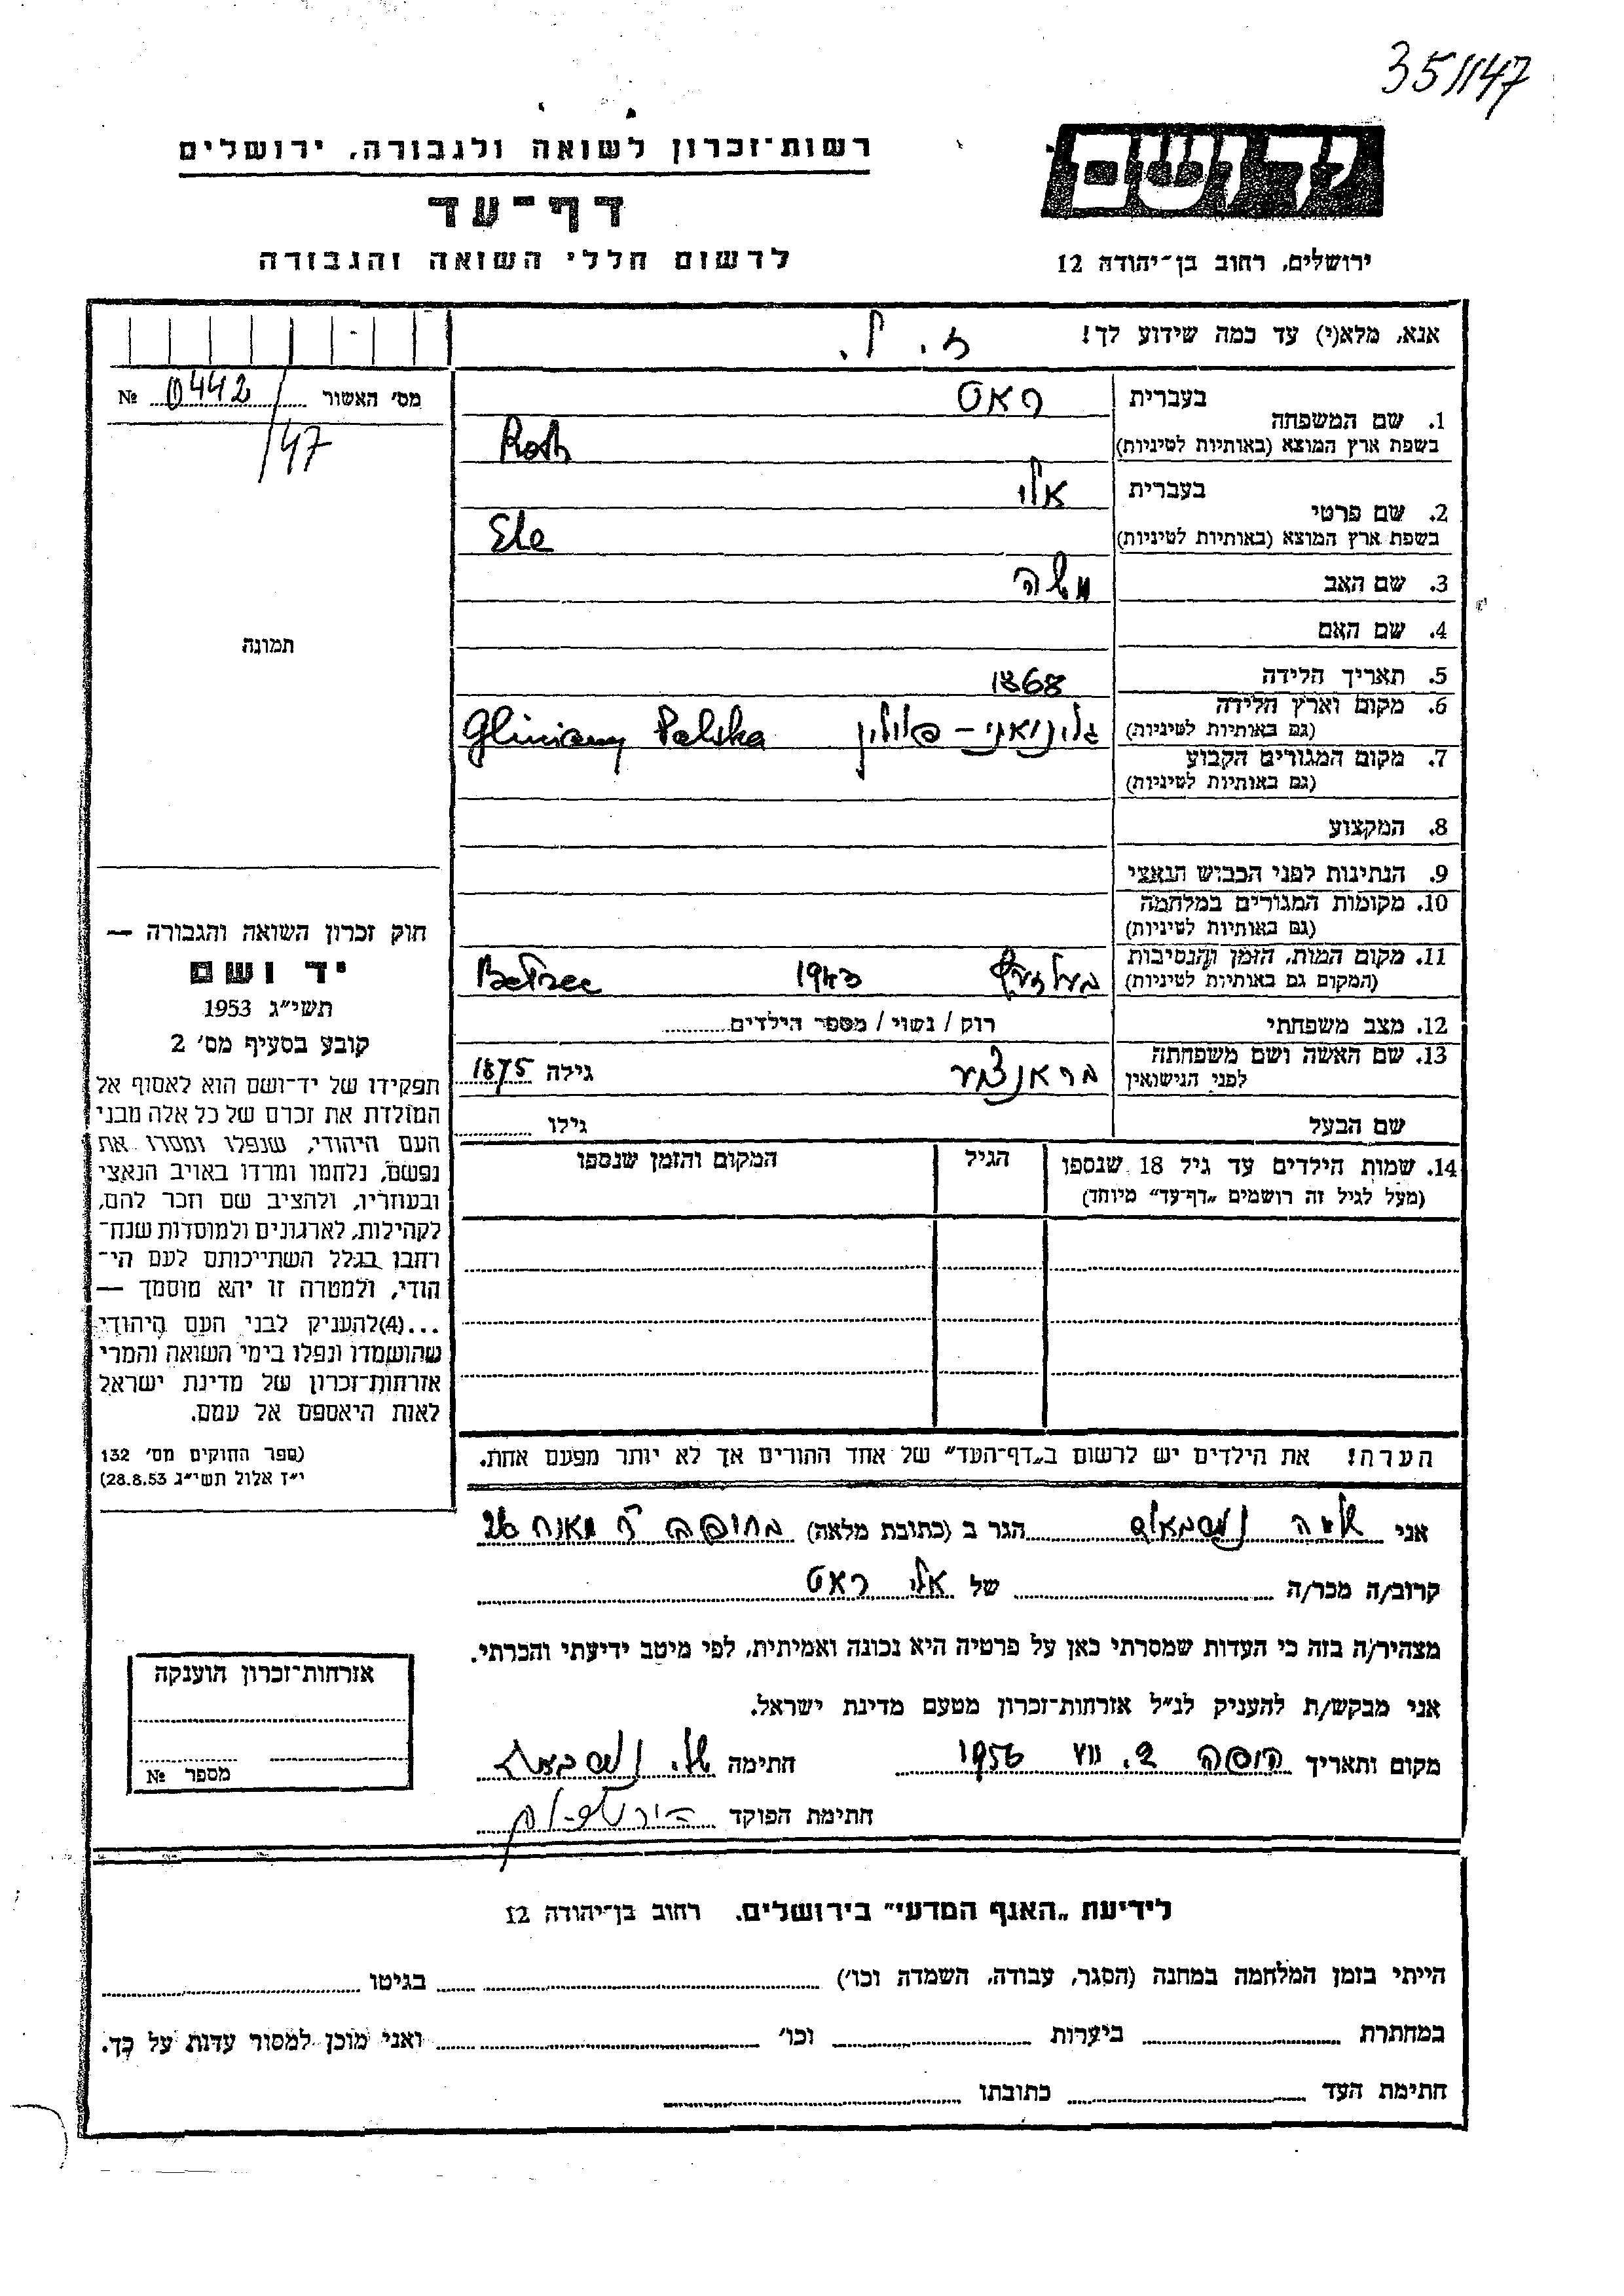 35/147
רשות-זכרון לשואה ולגבורה, ירושלים
דף-עד
לרשום חללי השואה והגבורה
יד ושם
ירושלים, רחוב בן-יהודה 12
אנא, מלא(י) עד כמה שידוע לך!
מס' האשור № 0442/47
תמונה
1. שם המשפחה
בעברית ראט
בשפת ארץ המוצא (באותיות לטיניות) Roth
2. שם פרטי
בעברית אלי
בשפת ארץ המוצא (באותיות לטיניות) Ele
3. שם האב משה
4. שם האם
5. תאריך הלידה 1868
6. מקום וארץ הלידה
(גם באותיות לטיניות) גלינואני - פולין Gliniany Polska
7. מקום המגורים הקבוע
(גם באותיות לטיניות)
8. המקצוע
9. הנתינות לפני הכבוש הנאצי
10. מקומות המגורים במלחמה
(גם באותיות לטיניות)
11. מקום המות, הזמן והנסיבות
(המקום גם באותיות לטיניות) 1943 Bełzec
12. מצב משפחתי רוק / נשוי / מספר הילדים
13. שם האשה ושם משפחתה
לפני הנישואין גילה 1875
שם הבעל גילו
14. שמות הילדים עד גיל 18 שנספו
(מעל לגיל זה רושמים „דף-עד" מיוחד)
הגיל
המקום והזמן שנספו
הערה! את הילדים יש לרשום ב„דף-העד" של אחד ההורים אך לא יותר מפעם אחת.
חוק זכרון השואה והגבורה —
יד ושם
תשי"ג 1953
קובע בסעיף מס' 2
תפקידו של יד-ושם הוא לאסוף אל
המולדת את זכרם של כל אלה מבני
העם היהודי, שנפלו ומסרו את
נפשם, נלחמו ומרדו באויב הנאצי
ובעוזריו, ולהציב שם וזכר להם,
לקהילות, לארגונים ולמוסדות שנח-
רחבו בגלל השתייכותם לעם הי-
הודי, ולמטרה זו יהא מוסמך —
...(4)להעניק לבני העם היהודי
שהושמדו ונפלו בימי השואה והמרי
אזרחות-זכרון של מדינת ישראל
לאות היאספם אל עמם.
(ספר החוקים מס' 132
י"ז אלול תשי"ג 28.8.53)
אני הגר ב (כתובת מלאה) 26
קרוב/ה מכר/ה של אלי ראט
מצהיר/ה בזה כי העדות שמסרתי כאן על פרטיה היא נכונה ואמיתית, לפי מיטב ידיעתי והכרתי.
אני מבקש/ת להעניק לנ"ל אזרחות-זכרון מטעם מדינת ישראל.
מקום ותאריך חיפה 2. VII 1956 חתימה
חתימת הפוקד
אזרחות-זכרון הוענקה
מספר №
לידיעת „האגף המדעי" בירושלים. רחוב בן-יהודה 12
הייתי בזמן המלחמה במחנה (הסגר, עבודה, השמדה וכו') בגיטו
במחתרת ביערות וכו' ואני מוכן למסור עדות על כך.
חתימת העד כתובתו